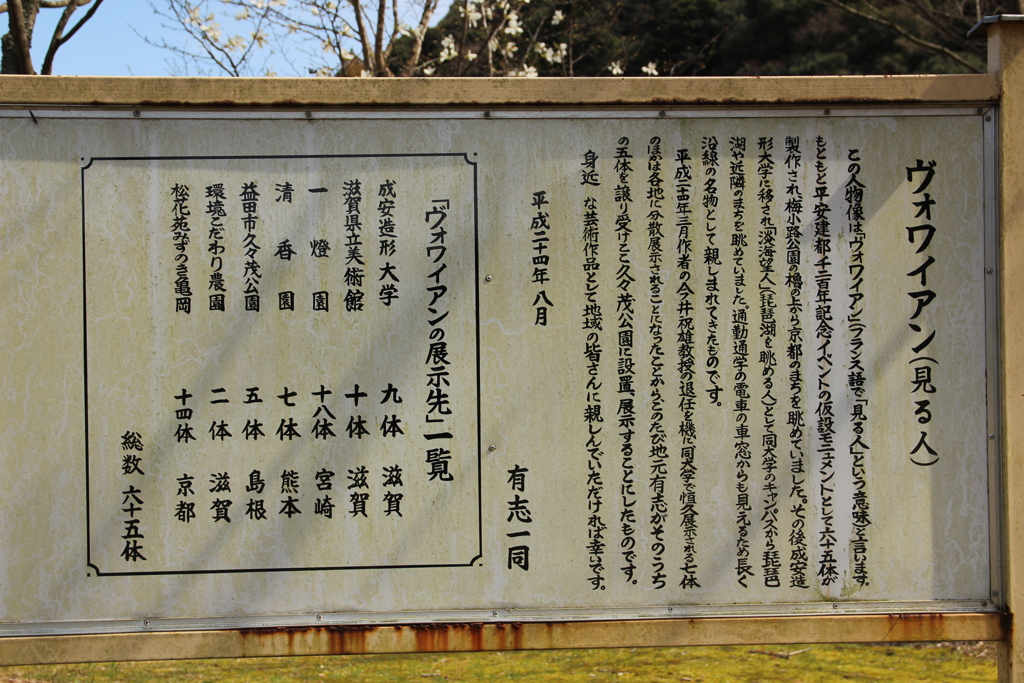 ヴォワイアン(見る人)
この人物像は「ヴォワイアン(フランス語で「見る人」という意味)と言います。
もともと平安建都千二百年記念イベントの仮設モニュメントとして六十五体が
製作され、梅小路公園の櫓の上から京都のまちを眺めていました。その後成安造
形大学に移され「淡海望人」(琵琶湖を眺める人)として同大学のキャンパスから琵琶
湖や近隣のまちを眺めていました。通勤通学の電車の車窓からも見えるため長く
沿線の名物として親しまれてきたものです。
平成二十四年三月作者の今井祝雄教授の退任を機に同大学で恒久展示される七体
のほかは各地に分散展示されることになったことから、このたび地元有志がそのうち
の五体を譲り受けここ久々茂公園に設置、展示することにしたものです。
身近 な芸術作品として地域の皆さんに親しんでいただければ幸いです。
平成二十四年 八月
有志一同
「ヴォワイアンの展示先」一覧
成安造形大学 九体 滋賀
滋賀県立美術館 十体 滋賀
一燈園 十八体 宮崎
清呑園 七体 熊本
益田市久々茂公園 五体 島根
環境こだわり農園 二体 滋賀
松花苑みずのき亀岡 十四体 京都
総数 六十五体